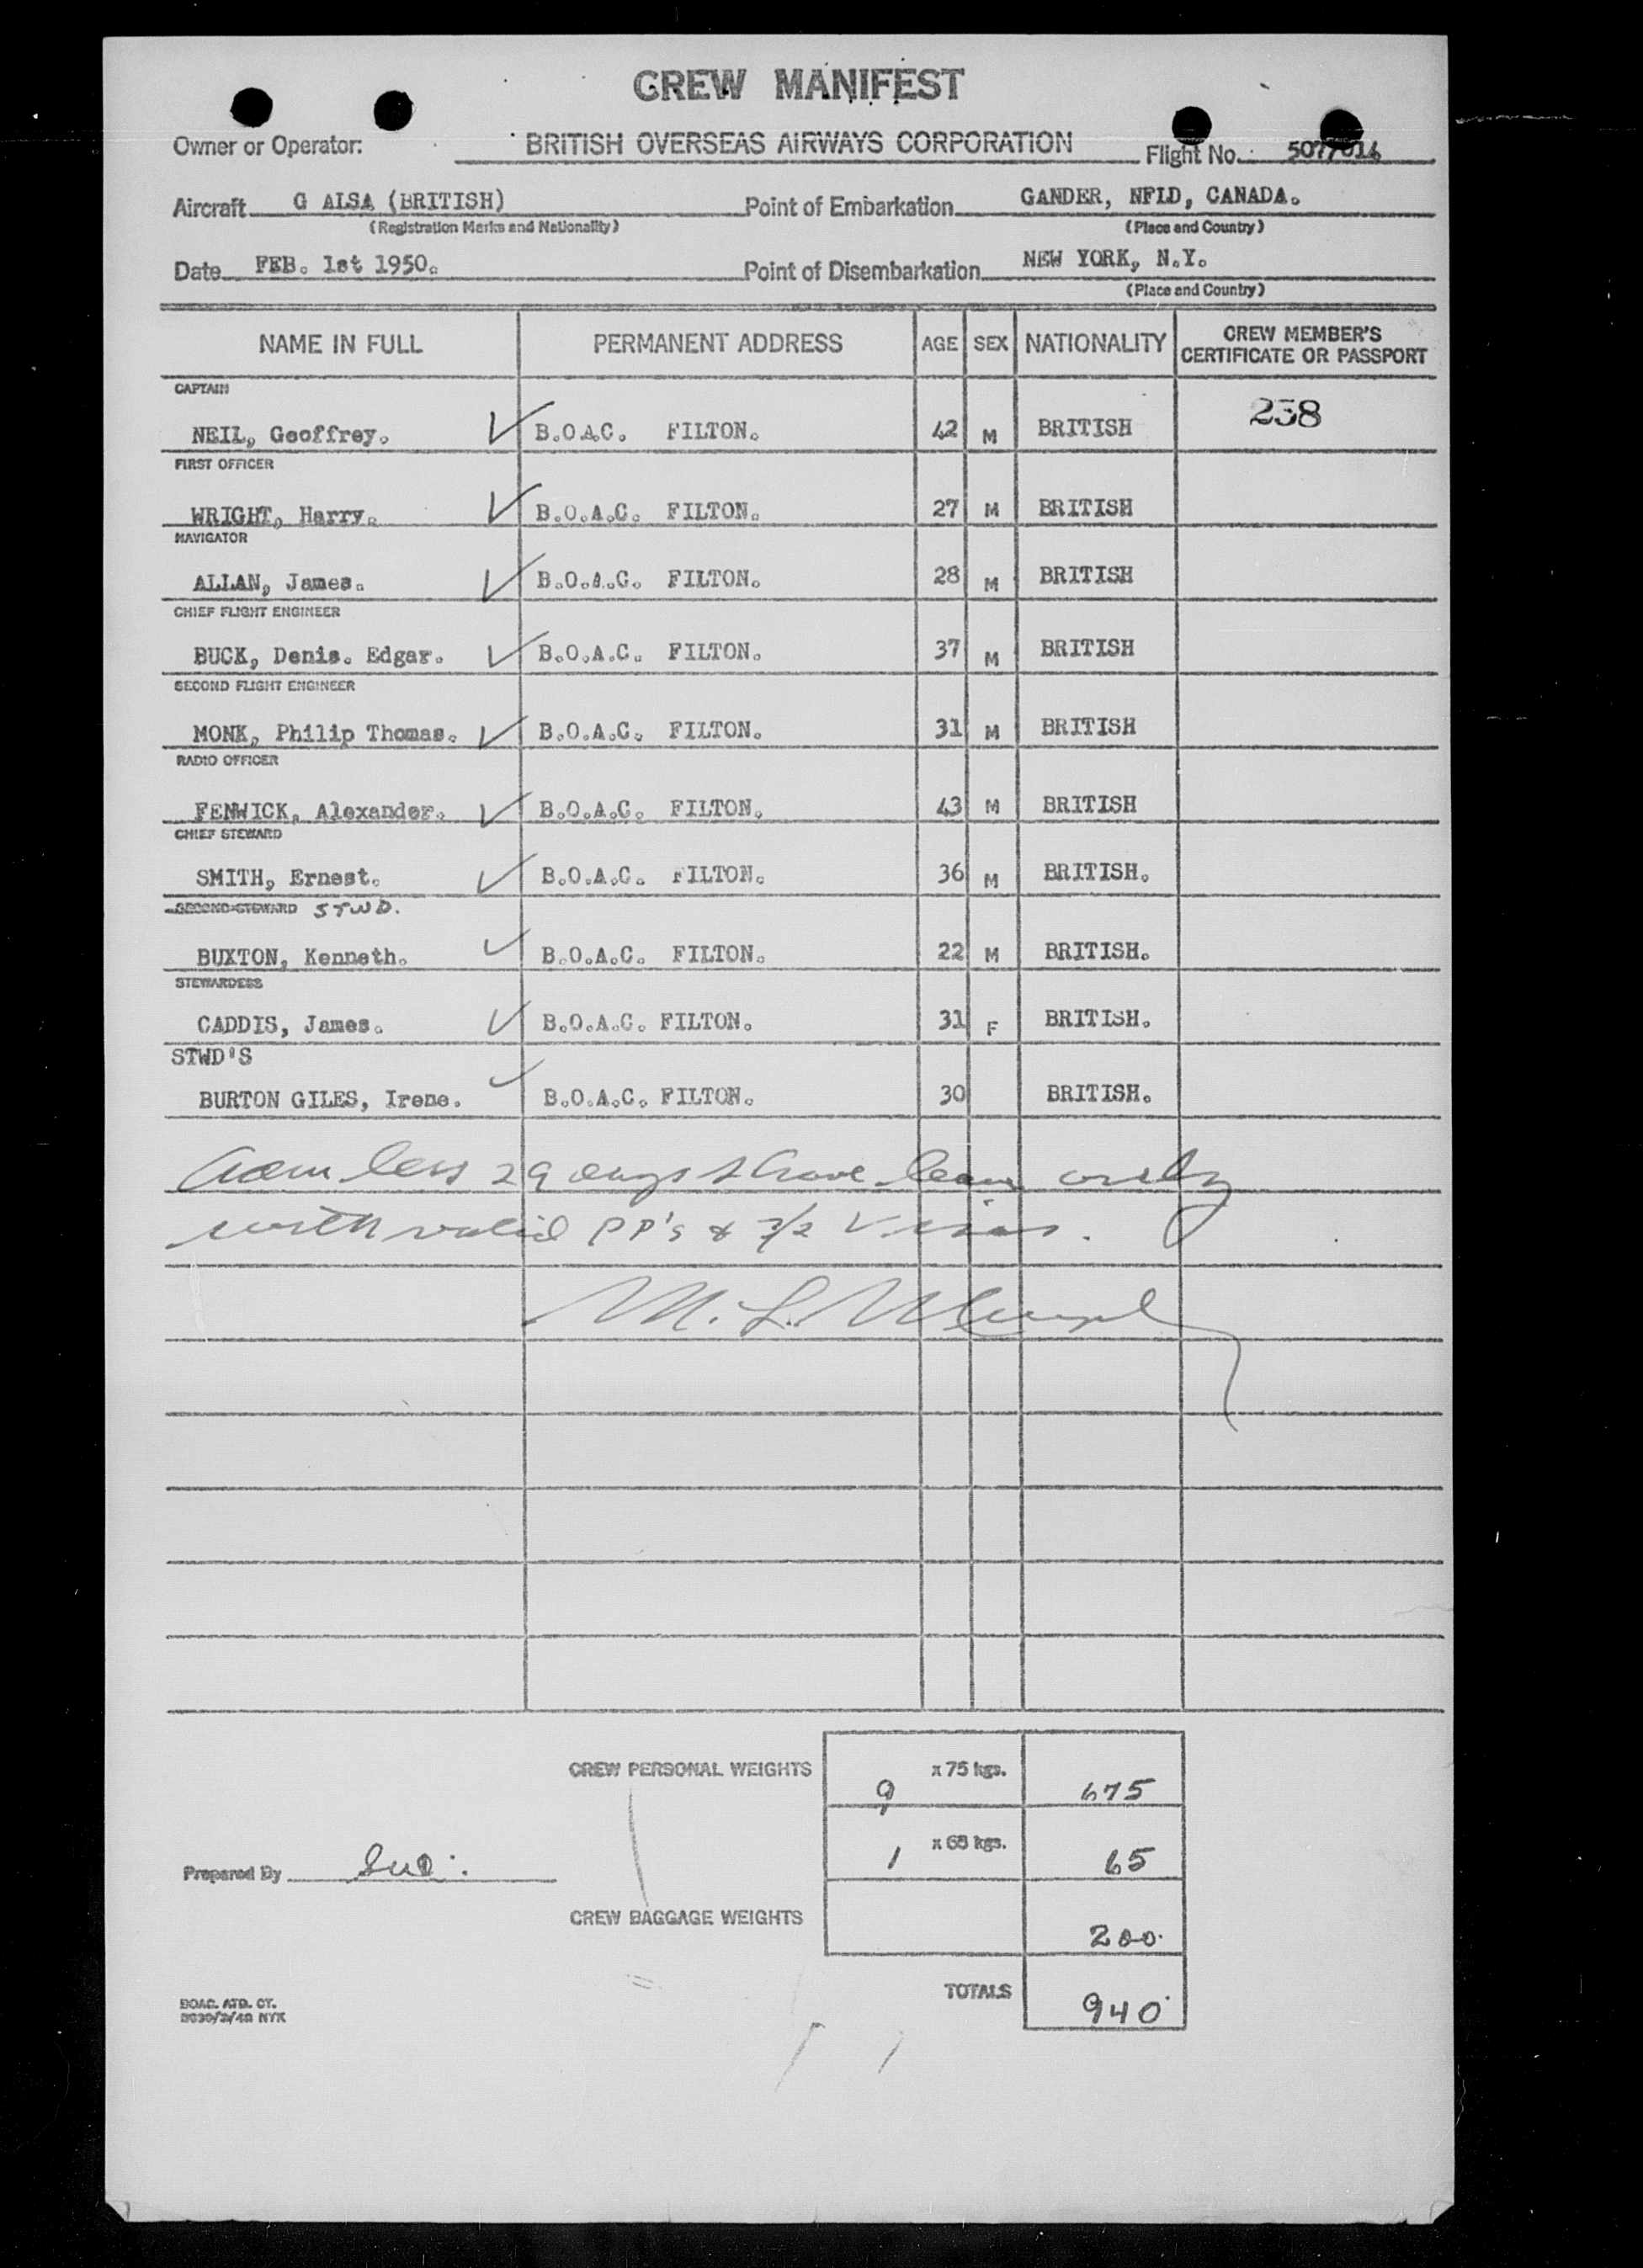 CREW MANIFEST
Owner or Operator: BRITISH OVERSEAS AIRWAYS CORPORATION Flight No.
Aircraft G ALSA (BRITISH) Point of Embarkation GANDER, NFLD, CANADA.
(Registration Marks and Nationality) (Place and Country)
Date FEB. 1st 1950. Point of Disembarkation NEW YORK, N.Y.
(Place and Country)
NAME IN FULL PERMANENT ADDRESS AGE SEX NATIONALITY CREW MEMBER'S CERTIFICATE OR PASSPORT
CAPTAIN
NEIL, Geoffrey. B.O.A.C. FILTON. 42 M BRITISH 238
FIRST OFFICER
WRIGHT, Harry. B.O.A.C. FILTON. 27 M BRITISH
NAVIGATOR
ALLAN, James. B.O.A.C. FILTON. 28 M BRITISH
CHIEF FLIGHT ENGINEER
BUCK, Denis. Edgar. B.O.A.C. FILTON. 37 M BRITISH
SECOND FLIGHT ENGINEER
MONK, Philip Thomas. B.O.A.C. FILTON. 31 M BRITISH
RADIO OFFICER
FENWICK, Alexander. B.O.A.C. FILTON. 43 M BRITISH
CHIEF STEWARD
SMITH, Ernest. B.O.A.C. FILTON. 36 M BRITISH.
SECOND STEWARD STWD.
BUXTON, Kenneth. B.O.A.C. FILTON. 22 M BRITISH.
STEWARDESS
CADDIS, James. B.O.A.C. FILTON. 31 F BRITISH.
STWD'S
BURTON GILES, Irene. B.O.A.C. FILTON. 30 BRITISH.
less 29 days shore leave only
with valid PP's & 3/2 Visas.
M. L.
CREW PERSONAL WEIGHTS 9 x 75 kgs. 675
1 x 65 kgs. 65
Prepared By
CREW BAGGAGE WEIGHTS 200
TOTALS 940
BOAC. ATD. CY.
NYK